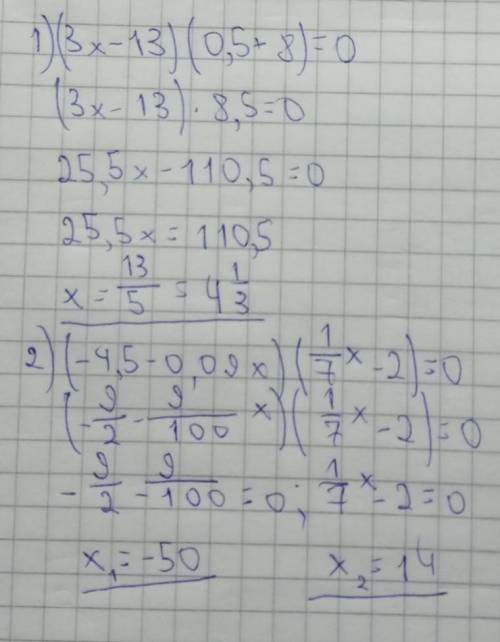 1) (3x-13)(0,5+8)=0
(3x-13)·8,5=0
25,5x-110,5=0
25,5x=110,5
x = 13/5 = 4 1/3
2) (-4,5-0,09x)(1/7 x -2)=0
(-9/2 - 9/100 x)(1/7 x -2)=0
-9/2 - 9/100 = 0; 1/7 x -2=0
x₁=-50 x₂=14